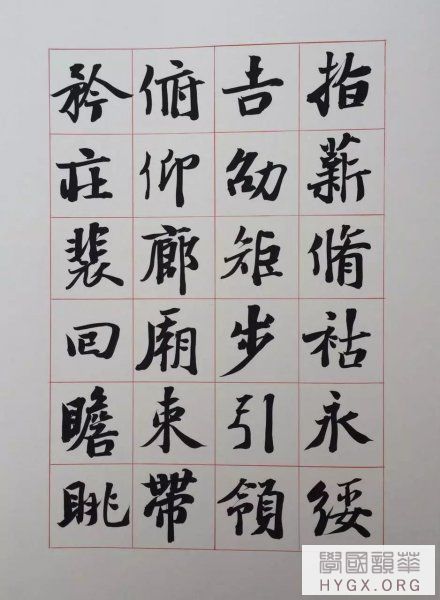 指薪脩祜永綏
吉劭矩步引領
俯仰廊廟束帶
矜莊裴回瞻眺
華韻國學
HYGX.ORG